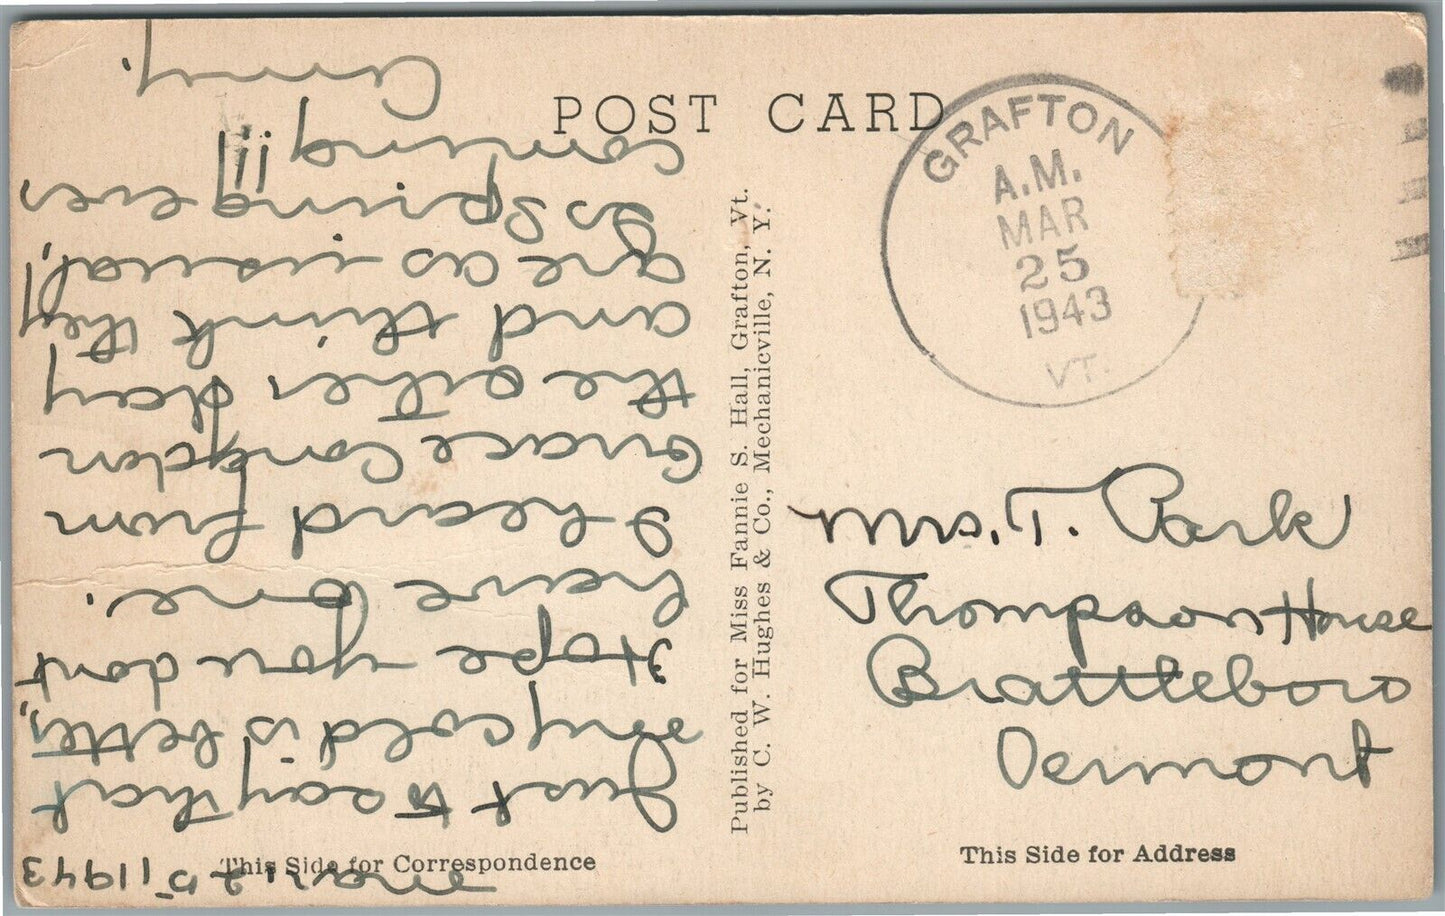 POST CARD
GRAFTON
A.M.
MAR
25
1943
VT.
Mar. 25, 1943
Just to say that
my cold is better,
Hope you dont
have one.
I heard from
Grace Congdon
the other day
and think they
are as usual,
Is Spring ever
coming !!!
Published for Miss Fannie S. Hall, Grafton, Vt.
by C. W. Hughes & Co., Mechanicville, N. Y.
Mrs. T. Park
Thompson House
Brattleboro
Vermont
This Side for Correspondence
This Side for Address